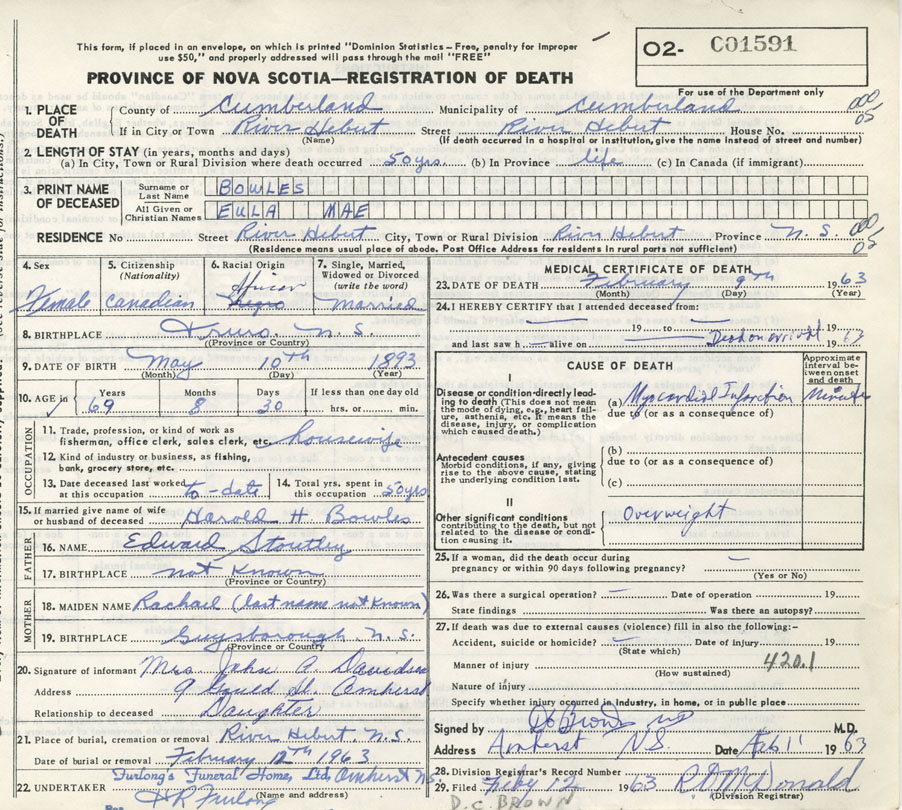 This form, if placed in an envelope, on which is printed "Dominion Statistics – Free, penalty for improper
use $50," and properly addressed will pass through the mail "FREE"
PROVINCE OF NOVA SCOTIA—REGISTRATION OF DEATH
O2- C01591
For use of the Department only
1. PLACE OF DEATH County of Cumberland Municipality of Cumberland
If in City or Town River Hebert Street River Hebert House No.
(Name) (If death occurred in a hospital or institution, give the name instead of street and number)
2. LENGTH OF STAY (in years, months and days)
(a) In City, Town or Rural Division where death occurred 50 yrs. (b) In Province life (c) In Canada (if immigrant)
3. PRINT NAME OF DECEASED Surname or Last Name BOWLES
All Given or Christian Names EULA MAE
RESIDENCE No Street River Hebert City, Town or Rural Division River Hebert Province N. S.
(Residence means usual place of abode. Post Office Address for residents in rural parts not sufficient)
4. Sex 5. Citizenship (Nationality) 6. Racial Origin 7. Single, Married, Widowed or Divorced (write the word)
Female Canadian Negro Married
8. BIRTHPLACE Truro, N. S.
(Province or Country)
9. DATE OF BIRTH May 10th 1893
(Month) (Day) (Year)
10. AGE in Years Months Days If less than one day old
69 8 30 hrs. or min.
OCCUPATION
11. Trade, profession, or kind of work as
fisherman, office clerk, sales clerk, etc. housewife
12. Kind of industry or business, as fishing,
bank, grocery store, etc.
13. Date deceased last worked at this occupation to-date 14. Total yrs. spent in this occupation 50 yrs
15. If married give name of wife
or husband of deceased Harold H. Bowles
FATHER
16. NAME Edward Stoutley
17. BIRTHPLACE not known
(Province or Country)
MOTHER
18. MAIDEN NAME Rachael (last name not known)
19. BIRTHPLACE Guysborough, N. S.
(Province or Country
20. Signature of informant Mrs John A Davidson
Address 9 St. Amherst
Relationship to deceased Daughter
21. Place of burial, cremation or removal River Hebert N.S.
Date of burial or removal February 12th 1963
Furlong's Funeral Home, Ltd, Amherst N.S.
22. UNDERTAKER H R Furlong
(Name and address)
MEDICAL CERTIFICATE OF DEATH
23. DATE OF DEATH February 9th 1963
(Month) (Day) (Year)
24. I HEREBY CERTIFY that I attended deceased from:
19 to
and last saw h alive on Dead on arrival 1963
CAUSE OF DEATH
Approximate interval between onset and death
I
Disease or condition directly leading to death (This does not mean
the mode of dying, e.g., heart failure, asthenia, etc. It means the
disease, injury, or complication
which caused death.)
(a) Myocardial Infarction Minutes
due to (or as a consequence of)
Antecedent causes
Morbid conditions, if any, giving
rise to the above cause, stating
the underlying condition last.
(b)
due to (or as a consequence of)
(c)
II
Other significant conditions
contributing to the death, but not
related to the disease or condition
causing it.
Overweight
25. If a woman, did the death occur during
pregnancy or within 90 days following pregnancy?
(Yes or No)
26. Was there a surgical operation? Date of operation 19
State findings Was there an autopsy?
27. If death was due to external causes (violence) fill in also the following:-
Accident, suicide or homicide? Date of injury 19
(State which)
Manner of injury 420.1
(How sustained)
Nature of injury
Specify whether injury occurred in industry, in home, or in public place
Signed by M.D.
Address Amherst N.S. Date Feb 11 1963
28. Division Registrar's Record Number
29. Filed Feby 12 1963
(Division Registrar)
D.C. BROWN